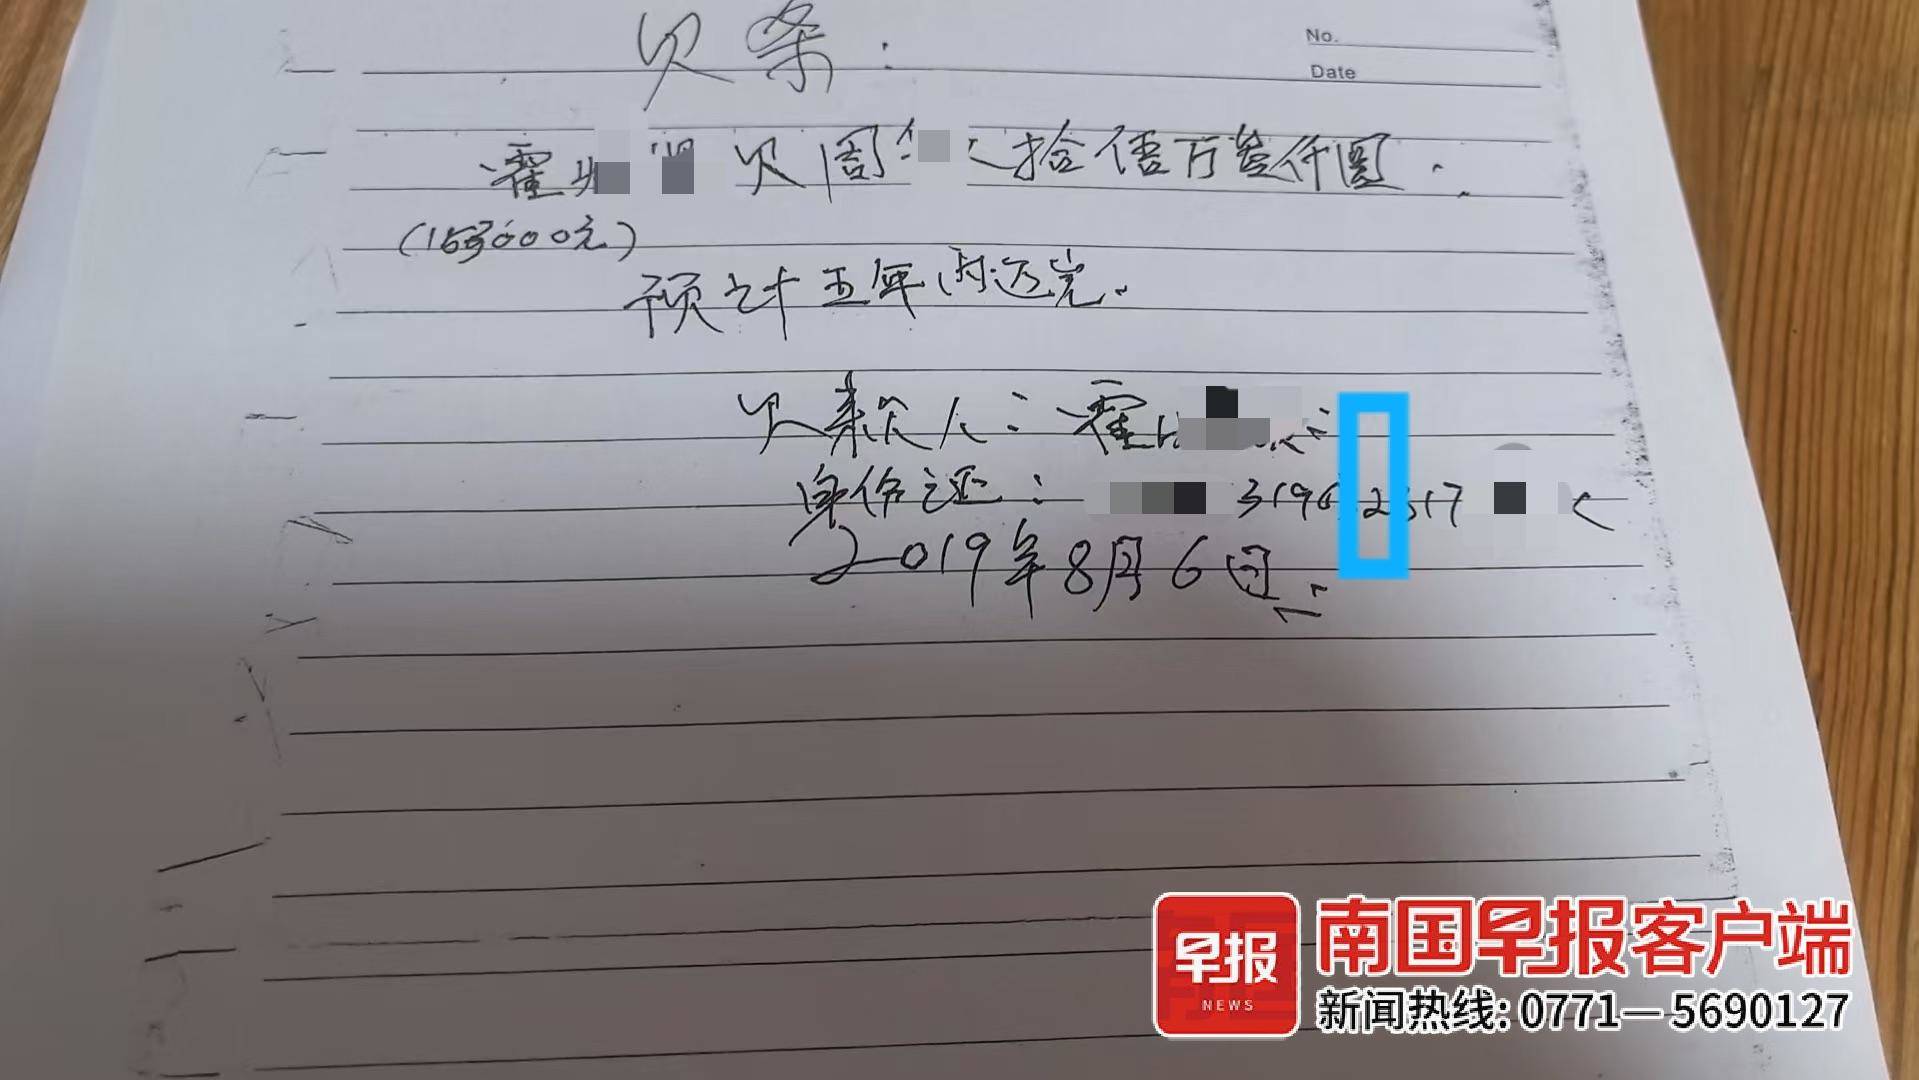 欠条：
No.
Date
霍 欠周 拾伍万叁仟圆.
(153000元)
预计五年内还完.
欠款人：霍
身份证： 3196 2317
2019年8月6日
早报
NEWS
南国早报客户端
新闻热线: 0771—5690127